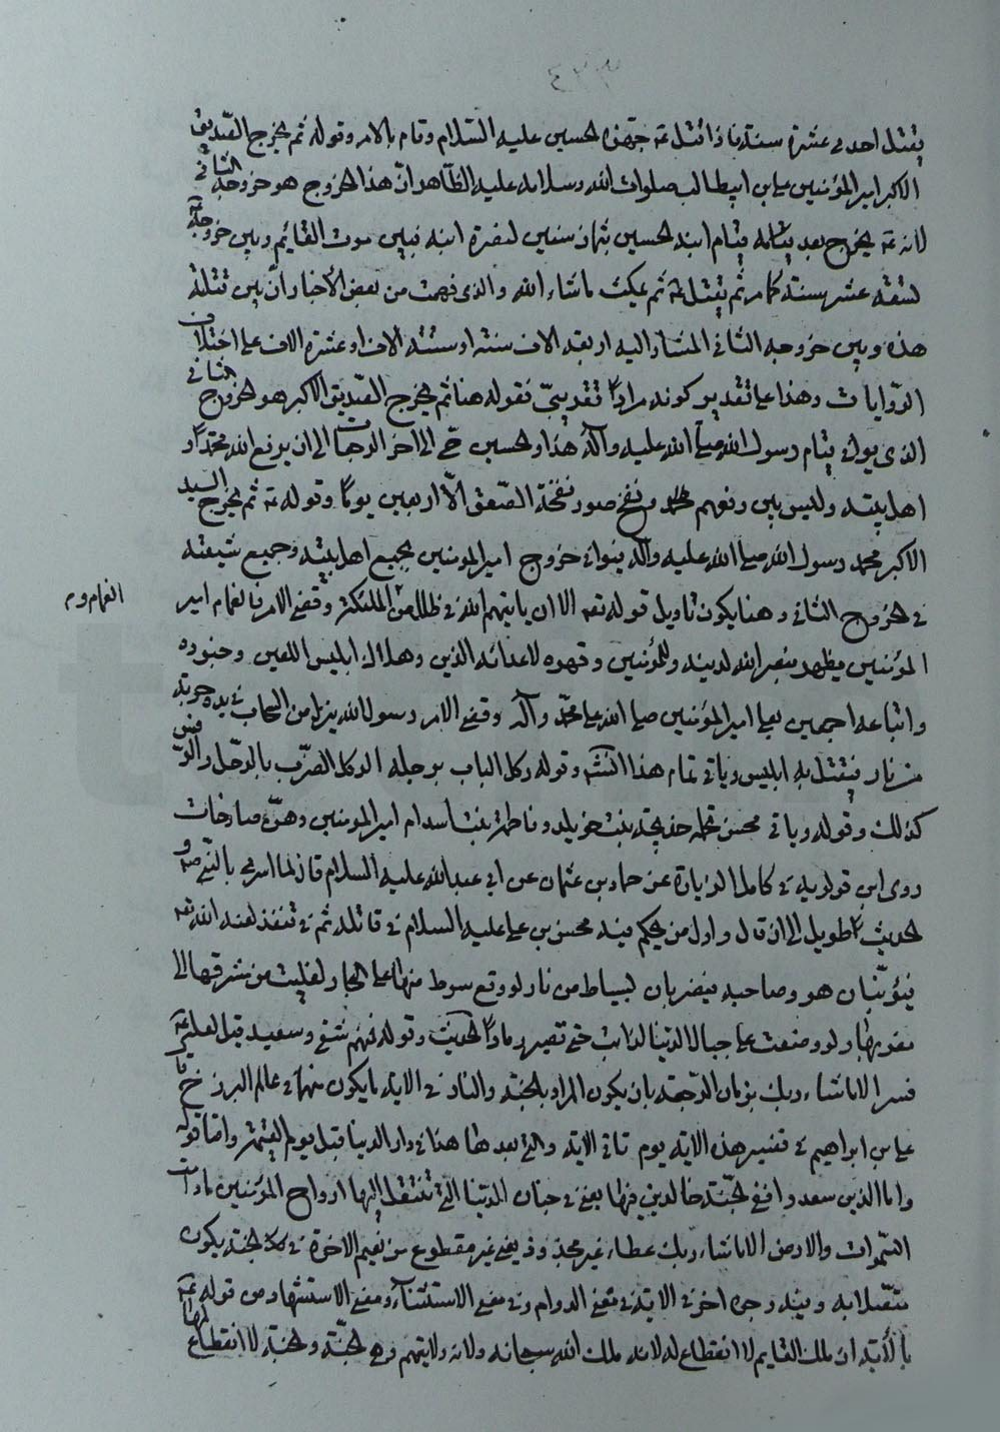 يقتل احدى عشرة سنة فاذا قتل عه جهزه الحسين عليه السلام وقام بالامر وقوله ثم يخرج الصديق
الاكبر امير المؤمنين علي بن ابيطالب صلوات الله وسلامه عليه الظاهر انّ هذا الخروج هو خروجه الثاني
لانه عه يخرج بعد قيام ابنه الحسين بثمان سنين لنصرة ابنه فبين موت القايم وبين خروجه عه
تسعة عشر سنة كما مر ثم يقتل عه ثم يمكث ماشاء الله والذى فهمت من بعض الأخبار انّ بين قتلته
هذه وبين خروجه الثانى المشار اليه اربعة الاف سنة او ستة الاف او عشرة الاف على اختلاف
الروايات وهذا على تقدير كونه مرادًا تقريبىّ فقوله هنا ثم يخرج الصديق الاكبر هو الخروج الثانى
الذى يوم قيام رسول الله صلى الله عليه وآله هذا والحسين حى الى اخر الرجعات الى ان يرفع الله محمدًا و
اهل بيته وليس بين رفعهم ونفخ صور نفخة الصّعق الّا اربعين يومًا وقوله عه ثم يخرج السيد
الاكبر محمد رسول الله صلى الله عليه وآله خروج امير المؤمنين بجميع اهل بيته وجميع شيعته
فى الخروج الثانى وهنا يكون تاويل قوله تعه الا ان ياتيهم الله فى ظلل من الغمام والملئكة وقضى الامر فالغمام امير
المؤمنين يظهر بنصر الله لدينه وللمؤمنين وقهره لاعدائه الذين وهلاك ابليس اللعين وجنوده
واتباعه اجمعين بعلى امير المؤمنين صلى الله على محمّد وآله وقضى الامر رسول الله ينزل من السحاب فى يده حربة
من نار فيقتل به ابليس وياتى تمام هذا انشه وقوله ركل الباب برجله الركل الضرب بالرّجل والرّفس
كذلك وقوله وياتى محسن تحمله خديجة بنت خويلد وفاطمة بنت اسد ام امير المومنين وهنّ صارخات
روى ابن قولويه فى كامل الزيارة عن حماد بن عثمان عن ابى عبد الله عليه السلام قال لما اسرى بالنّبى صه و
الحديث طويل الى ان قال واول من يحكم فيه محسن بن على عليه السلام فى قاتله ثم فى قنفذ لعنه الله تعه
فيؤتيان هو وصاحبه فيضربان بسياط من نار لو وقع سوط منها على البحار لغليت من مشرقها الى
مغربها ولو وضعت على جبال الدنيا لذابت حتى تصير رمادًا الحديث وقوله فمنهم شقى وسعيد
فسر الا ماشاء ربك بزمان الرّجعة بان يكون المراد بالجنّة والنار فى الاية ما يكون منهما فى عالم البرزخ
على بن ابراهيم فى تفسير هذه الاية يوم تاتى الاية والتى بعدها هذا فى دار الدنيا قبل يوم القيمة وامّا قوله
واما الذين سعدوا ففى الجنّة خالدين فيها يعنى فى جنان الدنيا التى تنتقل اليها ارواح المؤمنين مادامت
السّموات والارض الا ماشاء ربك عطاء غير مجذوذ يعنى غير مقطوع من نعيم الاخرة فى الجنة يكون
متصلا به وفيه وجوه اخر فى الاية فى معنى الدوام وفى معنى الاستثناء ومعنى الاستشهاد من قوله عه
بالاية ان ملك القايم لا انقطاع له لانه ملك الله سبحانه ولانه ولايتهم وهى الجنّة والجنة لا انقطاع لها
الغمام و م